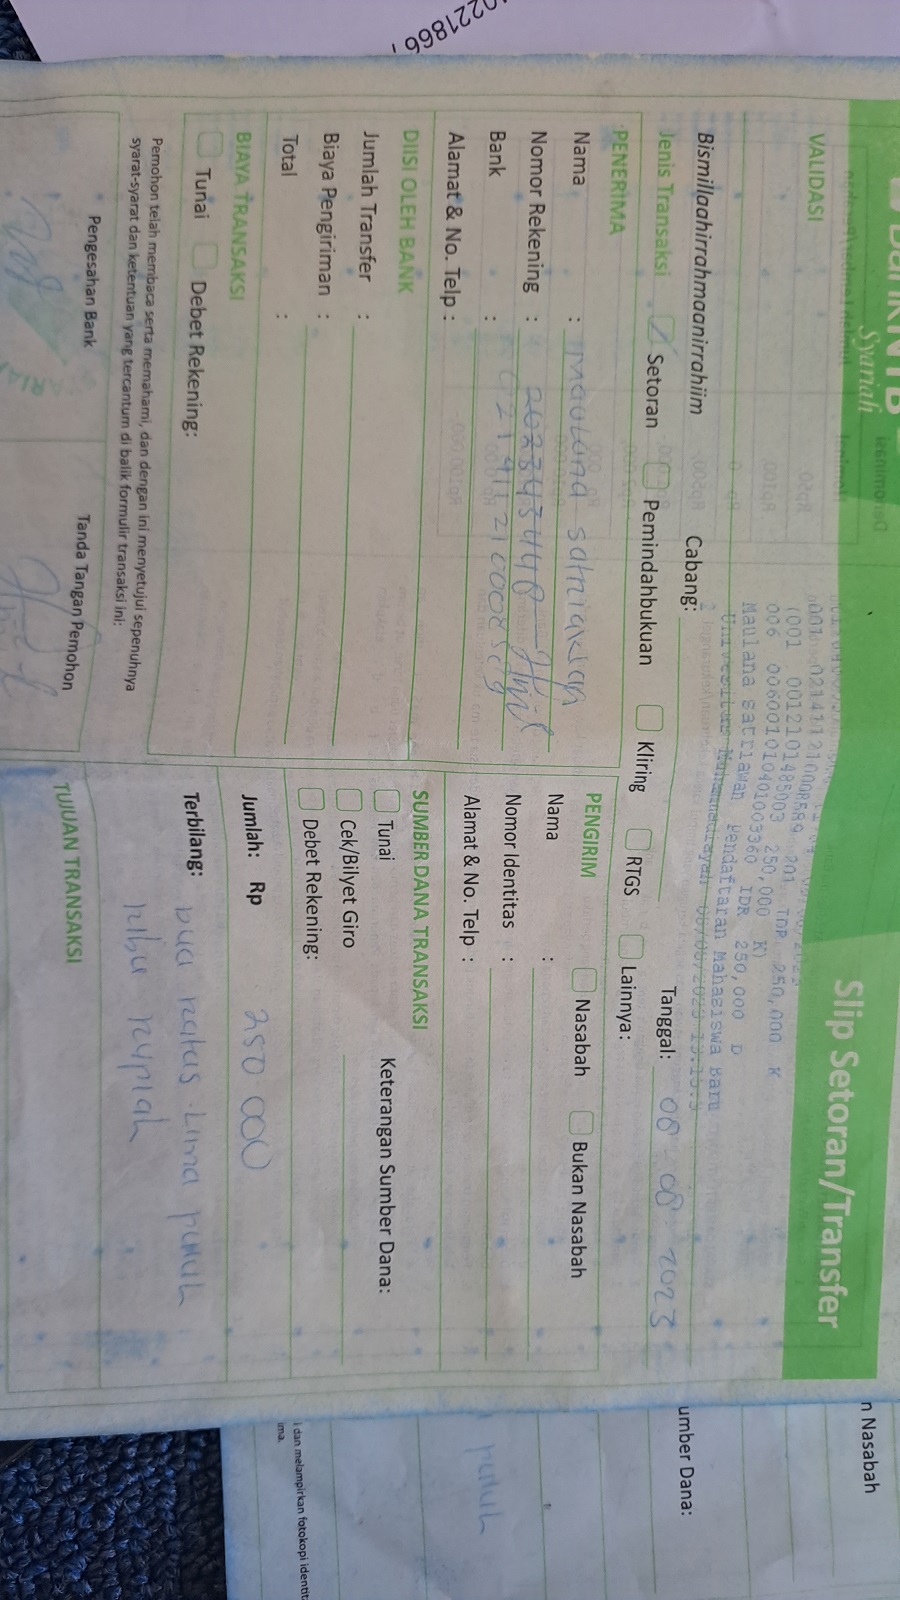 0221866
Bank NTB
Syariah
Slip Setoran/Transfer
VALIDASI
001 021411210008589 201 IDR 250,000 K
(001 0012101485003 250,000 K)
006 0060010104010003360 IDR 250,000 D
Maulana satriawan Pendaftaran Mahasiswa Baru
Universitas Muhammadiyah
Bismillaahirrahmaanirrahiim
Cabang:
Tanggal: 08-08-2023
Jenis Transaksi
Setoran
Pemindahbukuan
Kliring
RTGS
Lainnya:
PENERIMA
Nama : maulana satriawan
Nomor Rekening :
Bank : 021411210008589
Alamat & No. Telp :
PENGIRIM
Nasabah
Bukan Nasabah
Nama :
Nomor Identitas :
Alamat & No. Telp :
DIISI OLEH BANK
Jumlah Transfer :
Biaya Pengiriman :
Total :
SUMBER DANA TRANSAKSI
Tunai
Keterangan Sumber Dana:
Cek/Bilyet Giro
Debet Rekening:
BIAYA TRANSAKSI
Tunai
Debet Rekening:
Jumlah: Rp 250.000
Terbilang: Dua ratus Lima puluh
ribu rupiah
Pemohon telah membaca serta memahami, dan dengan ini menyetujui sepenuhnya
syarat-syarat dan ketentuan yang tercantum di balik formulir transaksi ini:
Pengesahan Bank
Tanda Tangan Pemohon
TUJUAN TRANSAKSI
n Nasabah
umber Dana:
puluh
i dan melampirkan fotokopi identit
ima.